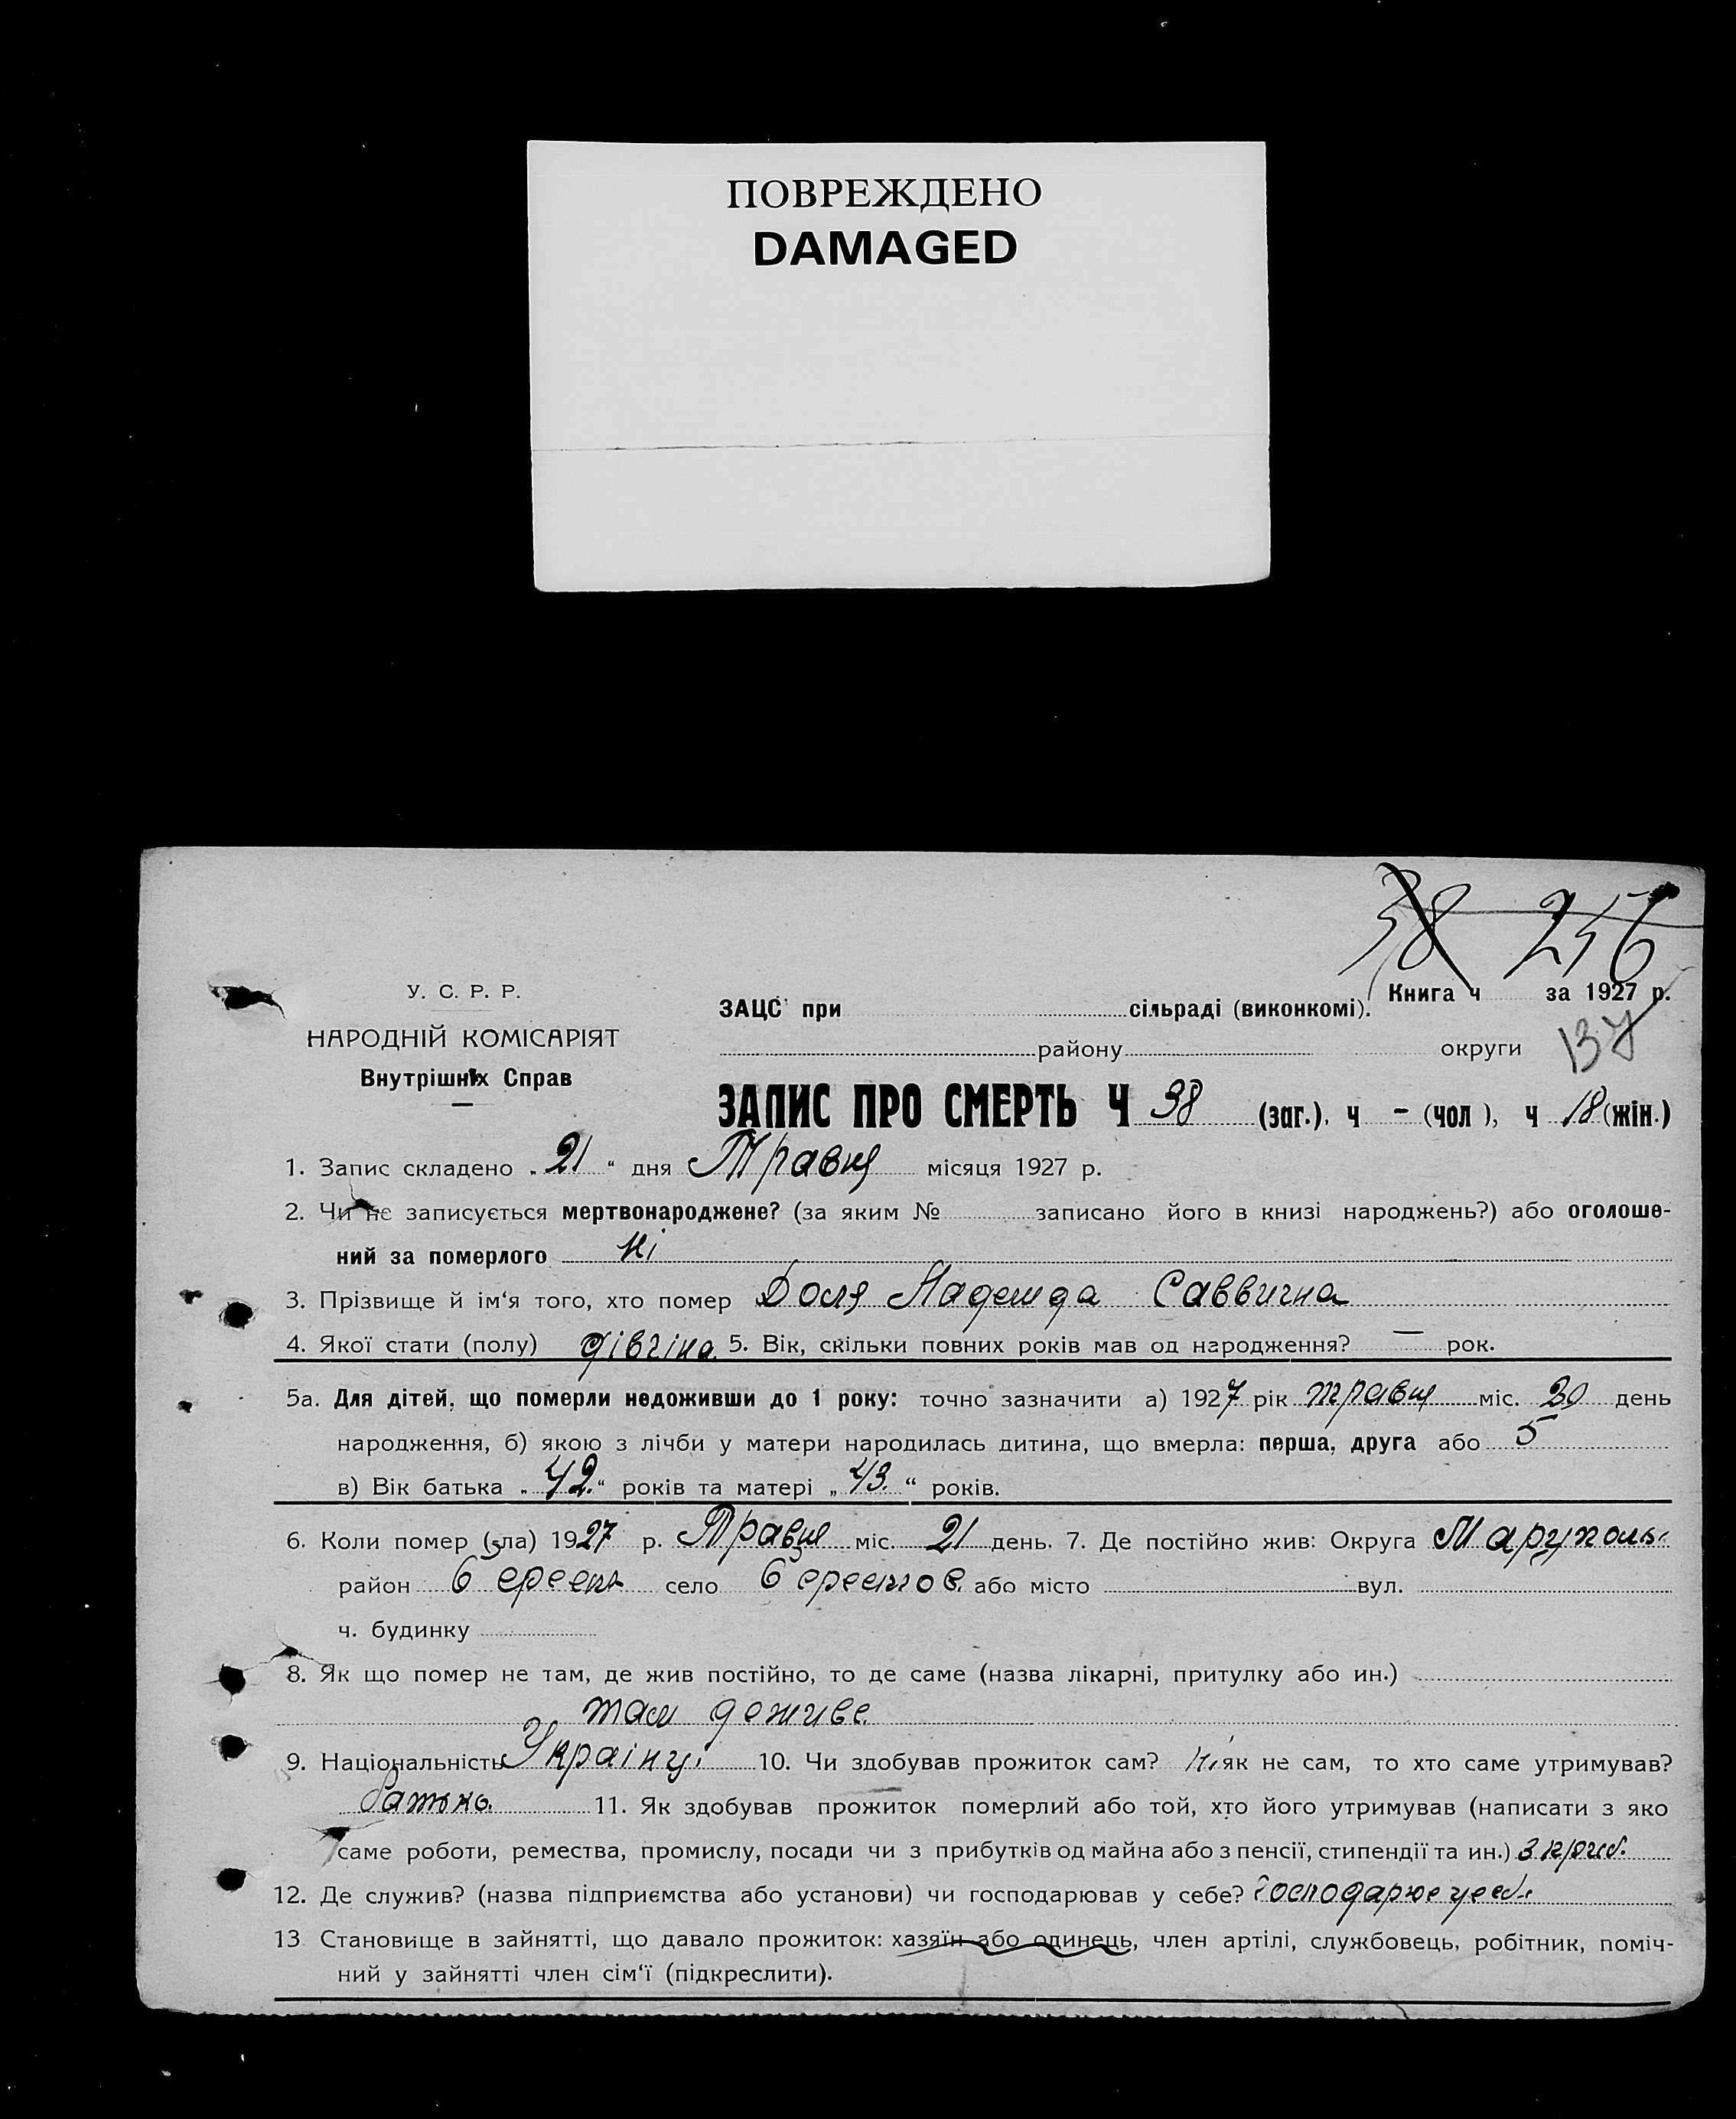 ПОВРЕЖДЕНО
DAMAGED
38 256
У. С. Р. Р.
НАРОДНІЙ КОМІСАРІЯТ
Внутрішніх Справ
ЗАЦС при сільраді (виконкомі). Книга ч за 1927 р.
району округи 137
ЗАПИС ПРО СМЕРТЬ Ч 38 (заг.), ч - (чол), ч 18 (жін.)
1. Запис складено „21“ дня Травня місяця 1927 р.
2. Чи не записується мертвонароджене? (за яким № записано його в книзі народжень?) або оголоше-
ний за померлого Ні
3. Прізвище й ім'я того, хто помер Доля Надежда Саввична
4. Якої стати (полу) дівчіна 5. Вік, скільки повних років мав од народження? — рок.
5а. Для дітей, що померли недоживши до 1 року: точно зазначити а) 1927 рік травня міс. 20 день
народження, б) якою з лічби у матери народилась дитина, що вмерла: перша, друга або 5
в) Вік батька „42.“ років та матері „43.“ років.
6. Коли помер (зла) 1927 р. Травня міс. 21 день. 7. Де постійно жив: Округа
район село або місто вул.
ч. будинку
8. Як що помер не там, де жив постійно, то де саме (назва лікарні, притулку або ин.)
там де живе
9. Національність Украінці 10. Чи здобував прожиток сам? Ні як не сам, то хто саме утримував?
Батько 11. Як здобував прожиток померлий або той, хто його утримував (написати з яко
саме роботи, ремества, промислу, посади чи з прибутків од майна або з пенсії, стипендії та ин.)
12. Де служив? (назва підприємства або установи) чи господарював у себе? Господарює
13 Становище в зайнятті, що давало прожиток: хазяїн або одинець, член артілі, службовець, робітник, поміч-
ний у зайнятті член сім'ї (підкреслити).